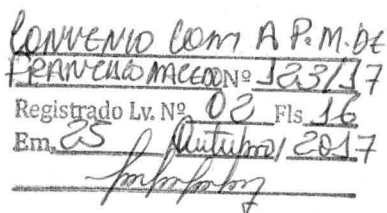 CONVENIO COM A P.M. DE
FRANCISCO MACEDO Nº 123/17
Registrado Lv. Nº 02 Fls 16
Em 25 Outubro / 2017